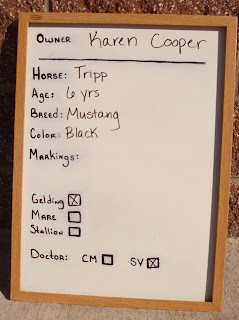 Owner Karen Cooper
Horse: Tripp
Age: 6 yrs
Breed: Mustang
Color: Black
Markings:
Gelding ☒
Mare ☐
Stallion ☐
Doctor: CM ☐ SV ☒